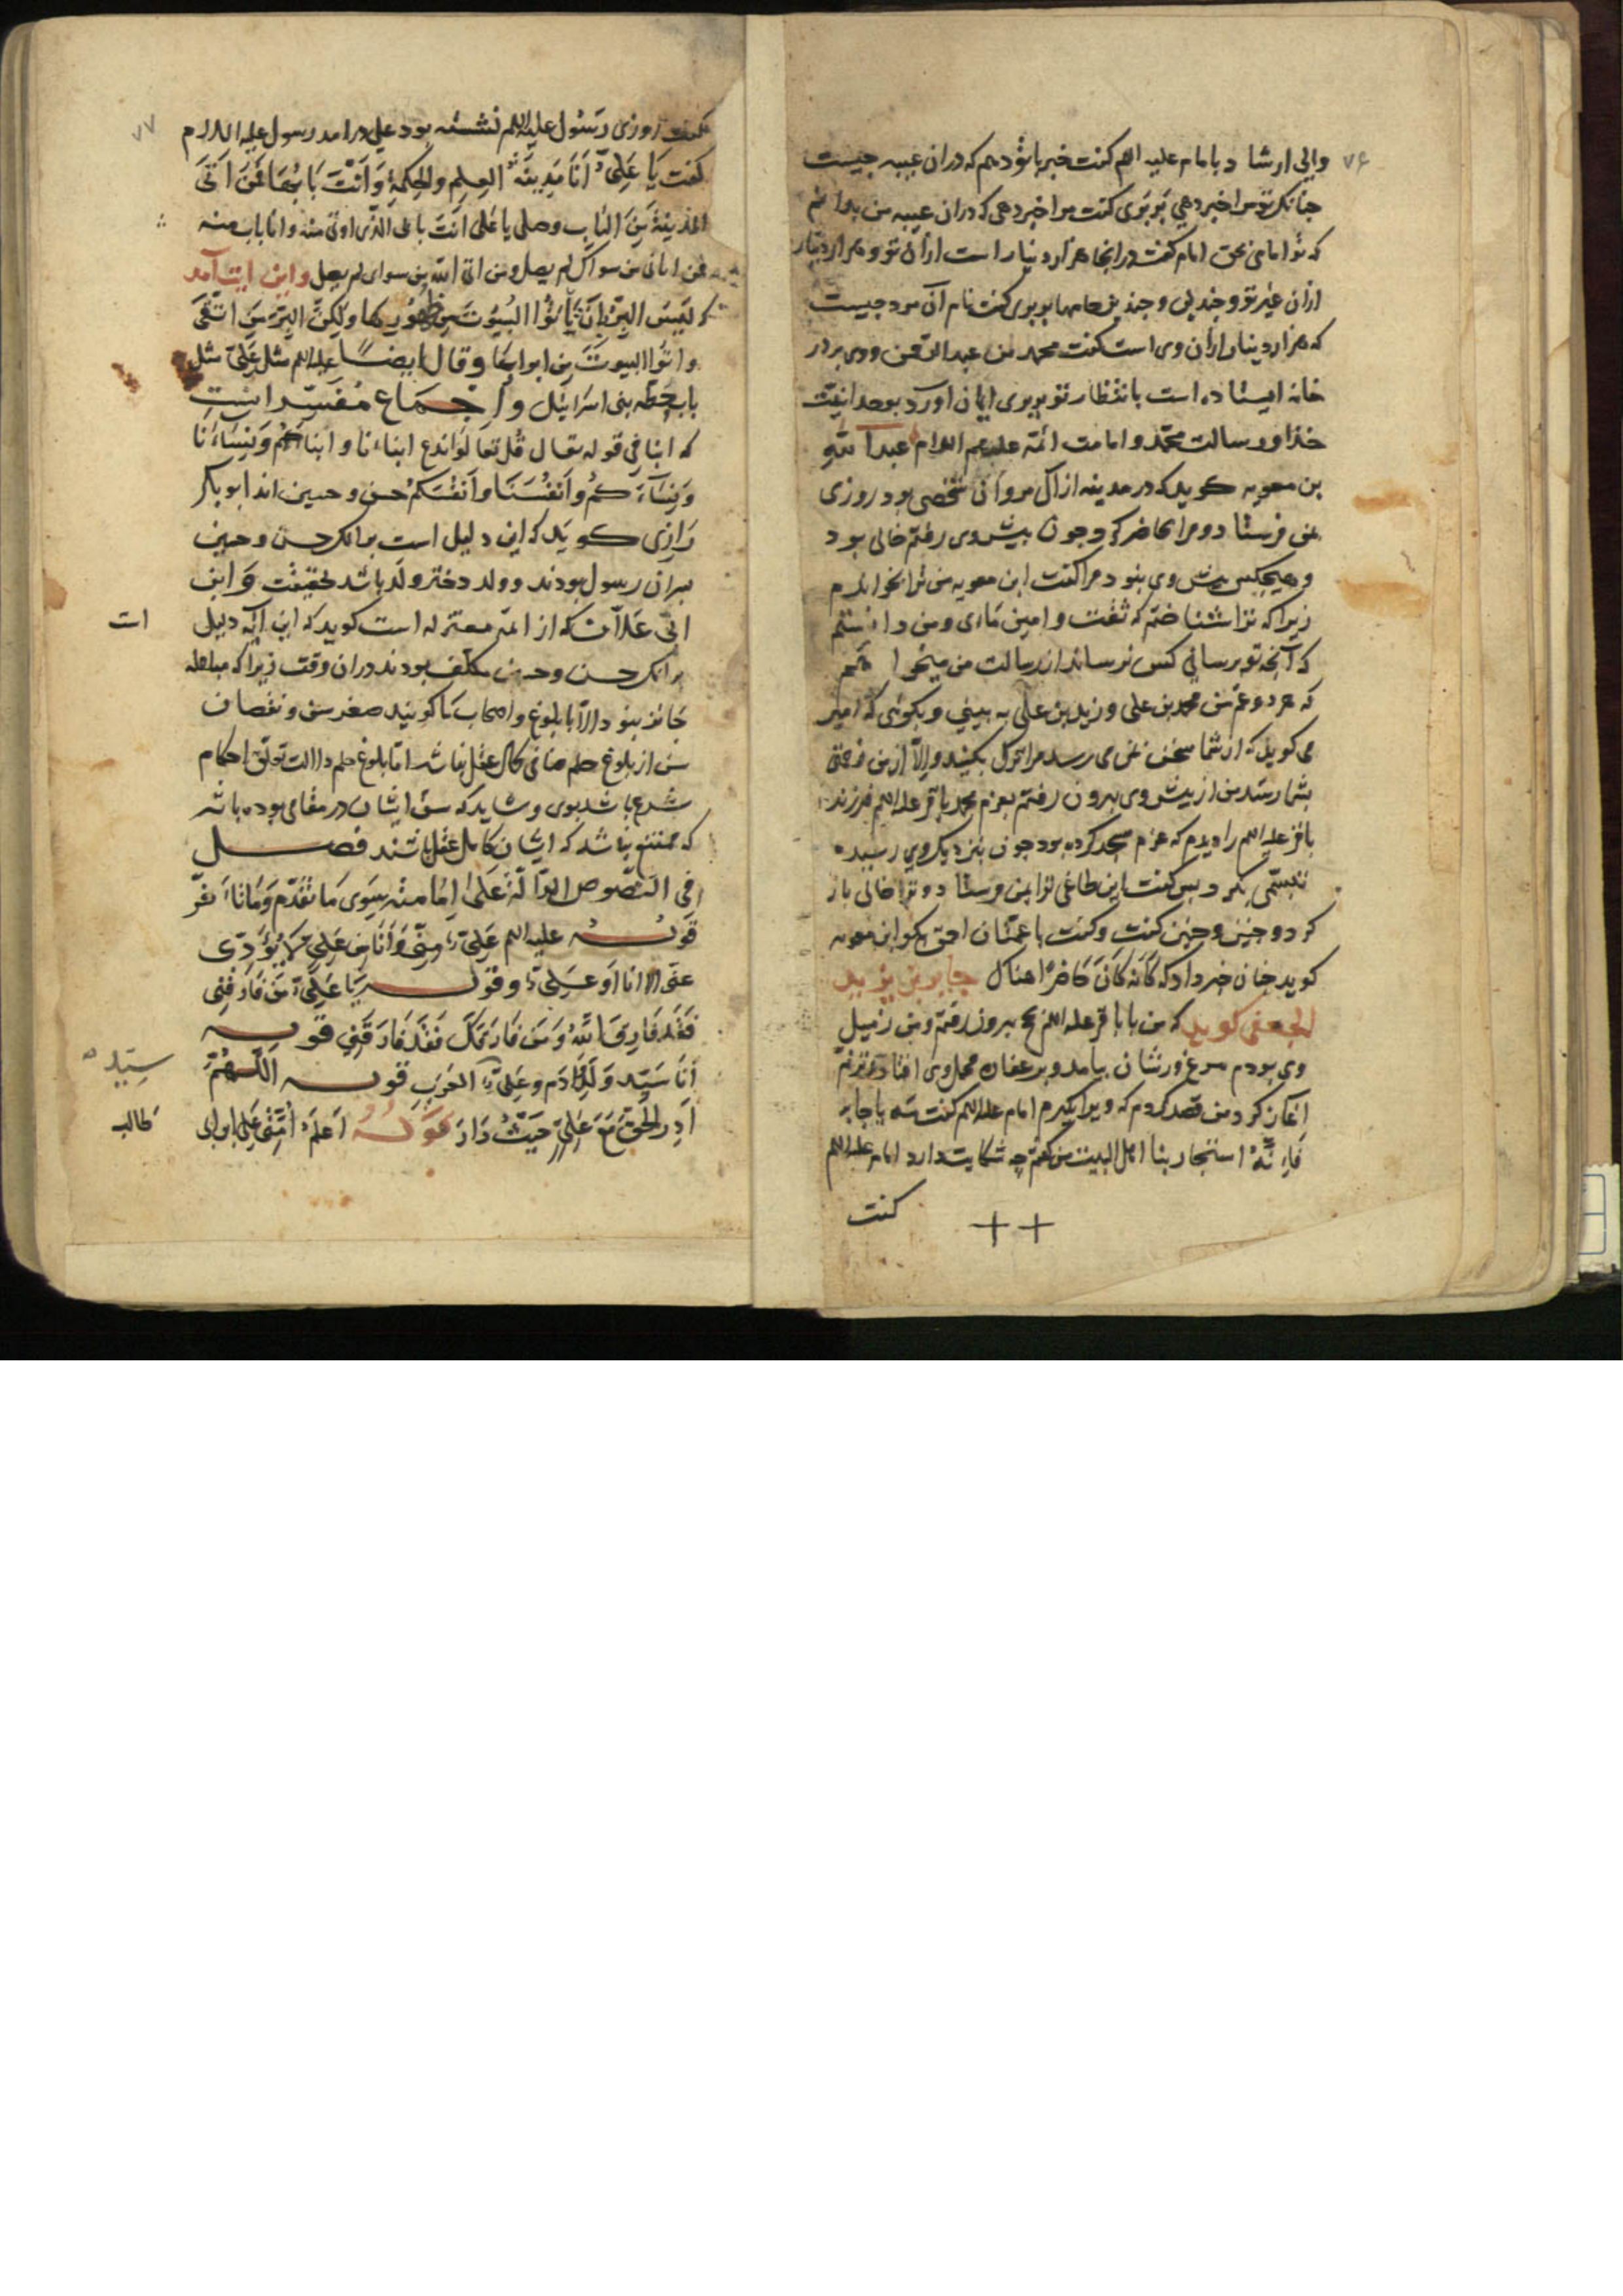 ۷۶
والی ارشاد با امام علیه السلم کفت خبر با تو دهم که دران عیبه چیست
چنانک تو مرا خبر دهی بربری کفت مرا خبر دهی که دران عیبه من بدانم
که تو امامی بحق امام کفت در انجا هزار دینار است ازان تو و هزار دینار
ازان غیر تو و چندین و چندین جامها بربری کفت نام آن مرد چیست
که هزار دینار ازان وی است کفت محمد بن عبد الرحمن و وی بر در
خانه ایستاده است بانتظار تو بربری ایمان اورد بوحدانیت
خدا و رسالت محمد و امامت ائمه علیهم السلام عبد الله
بن معویه کوید که در مدینه از آل مروان شخصی بود روزی
بمن فرستاد و مرا حاضر کرد چون پیش وی رفتم خالی بود
و هیچکس پیش وی بنود مرا کفت ابن معویه من ترا بخواندم
زیرا که ترا شناختم که ثقت و امین مائی و من دانستم
که آنچه تو برسانی کس نرساند از رسالت من میخواهم
که هر دو عم من محمد بن علی و زید بن علی به بینی و بکوئی که امیر
می کوید که از شما سخن بمن می رسد مرا ترک بکنید و الا از من زحمتی
بشما رسد من از پیش وی بیرون رفتم بعزم محمد باقر علیه السلم
باقر علیه السلم را دیدم که عزم مسجد کرده بود چون بنزدیک وی رسیدم
تبسمی بکرد پس کفت این طاغی ترا بمن فرستاد و ترا خالی باز
کرد و چنین و چنین کفت و کفت با عمتان احق بکو ابن معویه
کوید چنان خبر داد که کأنه کان حاضرا هناک جابر بن یزید
الجعفی کوید که من با باقر علیه السلم بحج بیرون رفتم و من زمیل
وی بودم مرغ ورشان بیامد و بر عضاده محمل وی افتاد ترنم
اغاز کرد من قصد کردم که ویرا بکیرم امام علیه السلم کفت مه یا جابر
فانه استجار بنا اهل البیت من کفتم چه شکایت دارد امام علیه السلم
کفت
++
۷۷
کفت روزی رسول علیه السلم نشسته بود علی درامد رسول علیه السلام
کفت یا علی أنا مدینة العلم والحکمة وأنت بابها فمن اتی
المدینة من الباب وصل یا علی انت بابی الذی اوتی منه وانا باب منه
فمن اتانی من سواک لم یصل ومن اتی الله من سوای لم یصل واین ایت آمد
که لیس البر بان تأتوا البیوت من ظهورها ولکن البر من اتقی
واتوا البیوت من ابوابها وقال ایضا علیه السلم مثل علی مثل
باب حطه بنی اسرائیل و اجماع مفسر انست
که ابنا فی قوله تعالی قل تعالوا ندع ابناءنا و ابناءکم ونساءنا
ونساءکم وأنفسنا وأنفسکم حسن و حسین اند ابو بکر
رازی کوید که این دلیل است برانک حسن و حسین
پسران رسول بودند و ولد دختر ولد باشد بحقیقت و ابن
ابی علان که از ائمه معتزله است کوید که این آیه دلیل
ات
برانک حسن و حسین مکلف بودند دران وقت زیرا که مباهله
جائز بنود الا با بلوغ و اصحاب ما کویند صغر سن و نقصان
سن از بلوغ حلم منافی کمال عقل نباشد اما بلوغ حلم دلالت تعلق احکام
شرع باشد بوی و شاید که سن ایشان در مقامی بوده باشد
که ممتنع نباشد که ایشان کامل عقل باشند فصل
فی النصوص الدالة علی إمامته سوی ما تقدم وما تأخر
قوله علیه السلم علی منی وأنا من علی لا یؤدی
عنی الا انا او علی وقوله یا علی من فارقنی
فقد فارق الله ومن فارقک فقد فارقنی قوله
أنا سید ولد آدم وعلی العرب قوله اللهم
سید
ادر الحق مع علی حیث دار قوله اعلم امتی علی بن ابی
طالب